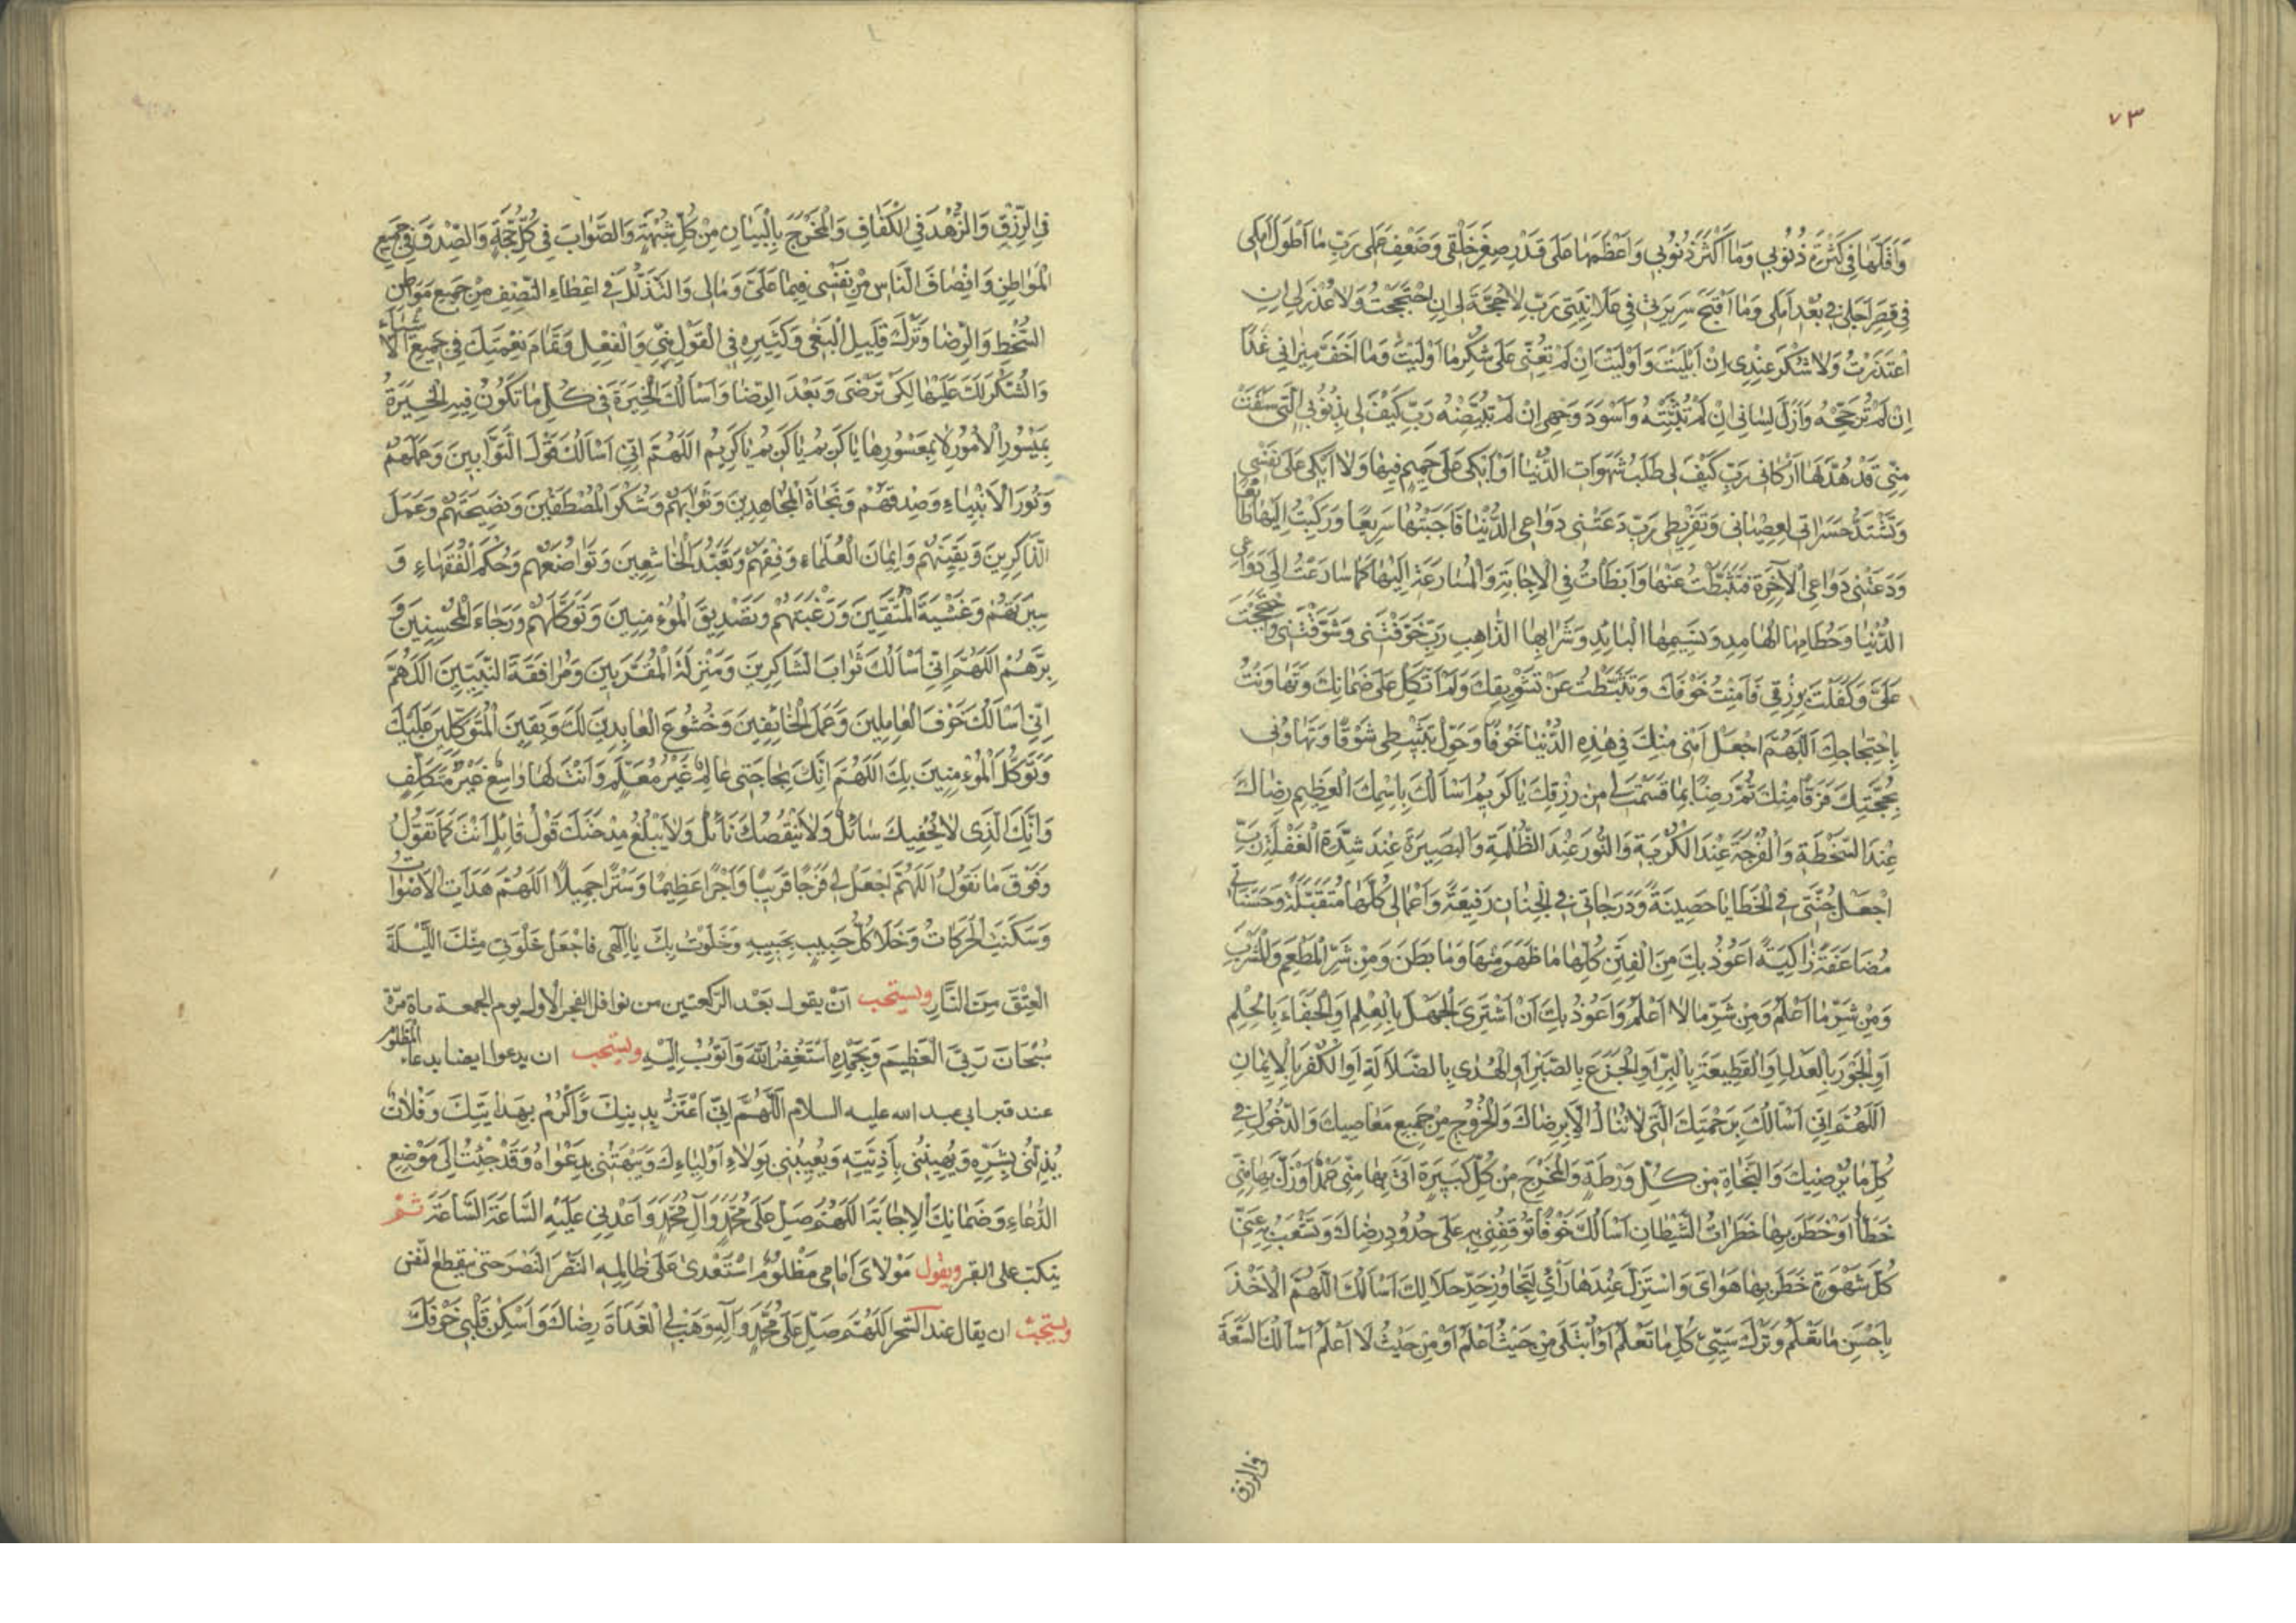 ٧٣
وَاَقَلَّهَا فِي كَثْرَةِ ذُنُوبِي وَمَا اَكْثَرَ ذُنُوبِي وَاَعْظَمَهَا عَلَى قَدْرِ صِغَرِ خَلْقِي وَضَعْفِ عَمَلِي رَبِّ مَا اَطْوَلَ اَمَلِي
فِي قِصَرِ اَجَلِي فِي بُعْدِ اَمَلِي وَمَا اَقْبَحَ سَرِيرَتِي فِي عَلَانِيَتِي رَبِّ لَا حُجَّةَ لِي اِنِ احْتَجَجْتُ وَلَا عُذْرَ لِي اِنِ
اعْتَذَرْتُ وَلَا شُكْرَ عِنْدِي اِنْ اَبْلَيْتَ وَاَوْلَيْتَ اِنْ لَمْ تُعِنِّي عَلَى شُكْرِ مَا اَوْلَيْتَ وَمَا اَخَفَّ مِيزَانِي غَدًا
اِنْ لَمْ تُرَجِّحْهُ وَاَزَلَّ لِسَانِي اِنْ لَمْ تُثَبِّتْهُ وَاَسْوَدَ وَجْهِي اِنْ لَمْ تُبَيِّضْهُ رَبِّ كَيْفَ لِي بِذُنُوبِي الَّتِي سَلَفَتْ
مِنِّي قَدْ هُدَّ لَهَا اَرْكَانِي رَبِّ كَيْفَ لِي طَلَبُ شَهَوَاتِ الدُّنْيَا اَوْ اَبْكِي عَلَى حَمِيمٍ فِيهَا وَلَا اَبْكِي عَلَى نَفْسِي
وَتَشْتَدُّ حَسَرَاتِي لِعِصْيَانِي وَتَفْرِيطِي رَبِّ دَعَتْنِي دَوَاعِي الدُّنْيَا فَاَجَبْتُهَا سَرِيعًا وَرَكِبْتُ اِلَيْهَا طَائِعًا
وَدَعَتْنِي دَوَاعِي الْآخِرَةِ فَتَثَبَّطْتُ عَنْهَا وَاَبْطَأْتُ فِي الْاِجَابَةِ وَالْمُسَارَعَةِ اِلَيْهَا كَمَا سَارَعْتُ اِلَى دَوَاعِي
الدُّنْيَا وَحُطَامِهَا الْهَامِدِ وَنَسِيمِهَا الْبَائِدِ وَشَرَابِهَا الذَّاهِبِ رَبِّ خَوَّفْتَنِي وَشَوَّقْتَنِي وَاحْتَجَجْتَ
عَلَيَّ وَكَفَلْتَ بِرِزْقِي فَاَمِنْتُ خَوْفَكَ وَتَثَبَّطْتُ عَنْ تَشْوِيقِكَ وَلَمْ اَتَّكِلْ عَلَى ضَمَانِكَ وَتَهَاوَنْتُ
بِاحْتِجَاجِكَ اَللّٰهُمَّ اجْعَلْ اَمْنِي مِنْكَ فِي هٰذِهِ الدُّنْيَا خَوْفًا وَحَوِّلْ تَثَبُّطِي شَوْقًا وَتَهَاوُنِي
بِحُجَّتِكَ فَرَقًا مِنْكَ ثُمَّ رَضِّنِي بِمَا قَسَمْتَ لِي مِنْ رِزْقِكَ يَا كَرِيمُ اَسْأَلُكَ بِاسْمِكَ الْعَظِيمِ رِضَاكَ
عِنْدَ السَّخْطَةِ وَالْفُرْجَةَ عِنْدَ الْكُرْبَةِ وَالنُّورَ عِنْدَ الظُّلْمَةِ وَالْبَصِيرَةَ عِنْدَ شِدَّةِ الْغَفْلَةِ رَبِّ
اجْعَلْ جُنَّتِي فِي الْخَطَايَا حَصِينَةً وَدَرَجَاتِي فِي الْجِنَانِ رَفِيعَةً وَاَعْمَالِي كُلَّهَا مُتَقَبَّلَةً وَحَسَنَاتِي
مُضَاعَفَةً زَاكِيَةً اَعُوذُ بِكَ مِنَ الْفِتَنِ كُلِّهَا مَا ظَهَرَ مِنْهَا وَمَا بَطَنَ وَمِنْ شَرِّ الْمَطْعَمِ وَالْمَشْرَبِ
وَمِنْ شَرِّ مَا اَعْلَمُ وَمِنْ شَرِّ مَا لَا اَعْلَمُ وَاَعُوذُ بِكَ اَنْ اَشْتَرِيَ الْجَهْلَ بِالْعِلْمِ اَوِ الْجَفَاءَ بِالْحِلْمِ
اَوِ الْجَوْرَ بِالْعَدْلِ اَوِ الْقَطِيعَةَ بِالْبِرِّ اَوِ الْجَزَعَ بِالصَّبْرِ اَوِ الْهُدَى بِالضَّلَالَةِ اَوِ الْكُفْرَ بِالْاِيمَانِ
اَللّٰهُمَّ اِنِّي اَسْأَلُكَ بِرَحْمَتِكَ الَّتِي لَا تُنَالُ اِلَّا بِرِضَاكَ وَالْخُرُوجَ مِنْ جَمِيعِ مَعَاصِيكَ وَالدُّخُولَ فِي
كُلِّ مَا يُرْضِيكَ وَالنَّجَاةَ مِنْ كُلِّ وَرْطَةٍ وَالْمَخْرَجَ مِنْ كُلِّ كَبِيرَةٍ اَتَى بِهَا مِنِّي عَمْدٌ اَوْ زَلَّ بِهَا مِنِّي
خَطَأٌ اَوْ خَطَرَ بِهَا خَطَرَاتُ الشَّيْطَانِ اَسْأَلُكَ خَوْفًا تُوقِفُنِي بِهِ عَلَى حُدُودِ رِضَاكَ وَتَشْعَبُ بِهِ عَنِّي
كُلَّ شَهْوَةٍ خَطَرَ بِهَا هَوَايَ وَاسْتَزَلَّ عِنْدَهَا رَأْيِي لِتَجَاوُزِ حَدِّ حَلَالِكَ اَسْأَلُكَ اَللّٰهُمَّ الْاَخْذَ
بِاَحْسَنِ مَا تَعْلَمُ وَتَرْكَ سَيِّئِ كُلِّ مَا تَعْلَمُ اَوْ اُبْتَلَى مِنْ حَيْثُ اَعْلَمُ اَوْ مِنْ حَيْثُ لَا اَعْلَمُ اَسْأَلُكَ السَّعَةَ
في الرزق
فِي الرِّزْقِ وَالزُّهْدَ فِي الْكَفَافِ وَالْمَخْرَجَ بِالْبَيَانِ مِنْ كُلِّ شُبْهَةٍ وَالصَّوَابَ فِي كُلِّ حُجَّةٍ وَالصِّدْقَ فِي جَمِيعِ
الْمَوَاطِنِ وَاِنْصَافَ النَّاسِ مِنْ نَفْسِي فِيمَا عَلَيَّ وَمَا لِي وَالتَّذَلُّلَ فِي اِعْطَاءِ النَّصَفِ مِنْ جَمِيعِ مَوَاطِنِ
السُّخْطِ وَالرِّضَا وَتَرْكَ قَلِيلِ الْبَغْيِ وَكَثِيرِهِ فِي الْقَوْلِ مِنِّي وَالْفِعْلِ وَتَمَامَ نِعْمَتِكَ فِي جَمِيعِ الْاَشْيَاءِ
وَالشُّكْرَ لَكَ عَلَيْهَا لِكَيْ تَرْضَى وَبَعْدَ الرِّضَا وَاَسْأَلُكَ الْخِيَرَةَ فِي كُلِّ مَا تَكُونُ فِيهِ الْخِيَرَةُ
بِمَيْسُورِ الْاُمُورِ لَا بِمَعْسُورِهَا يَا كَرِيمُ يَا كَرِيمُ يَا كَرِيمُ اَللّٰهُمَّ اِنِّي اَسْأَلُكَ قَوْلَ التَّوَّابِينَ وَعَمَلَهُمْ
وَنُورَ الْاَنْبِيَاءِ وَصِدْقَهُمْ وَنَجَاةَ الْمُجَاهِدِينَ وَثَوَابَهُمْ وَشُكْرَ الْمُصْطَفَيْنَ وَنَصِيحَتَهُمْ وَعَمَلَ
الذَّاكِرِينَ وَيَقِينَهُمْ وَاِيمَانَ الْعُلَمَاءِ وَفِقْهَهُمْ وَتَعَبُّدَ الْخَاشِعِينَ وَتَوَاضُعَهُمْ وَحُكْمَ الْفُقَهَاءِ وَ
سِيرَتَهُمْ وَخَشْيَةَ الْمُتَّقِينَ وَرَغْبَتَهُمْ وَتَصْدِيقَ الْمُؤْمِنِينَ وَتَوَكُّلَهُمْ وَرَجَاءَ الْمُحْسِنِينَ وَ
بِرَّهُمْ اَللّٰهُمَّ اِنِّي اَسْأَلُكَ ثَوَابَ الشَّاكِرِينَ وَمَنْزِلَةَ الْمُقَرَّبِينَ وَمُرَافَقَةَ النَّبِيِّينَ اَللّٰهُمَّ
اِنِّي اَسْأَلُكَ خَوْفَ الْعَامِلِينَ وَعَمَلَ الْخَائِفِينَ وَخُشُوعَ الْعَابِدِينَ لَكَ وَيَقِينَ الْمُتَوَكِّلِينَ عَلَيْكَ
وَتَوَكُّلَ الْمُؤْمِنِينَ بِكَ اَللّٰهُمَّ اِنَّكَ بِحَاجَتِي عَالِمٌ غَيْرُ مُعَلَّمٍ وَاَنْتَ لَهَا وَاسِعٌ غَيْرُ مُتَكَلِّفٍ
وَاَنْتَ الَّذِي لَا يُحْفِيكَ سَائِلٌ وَلَا يَنْقُصُكَ نَائِلٌ وَلَا يَبْلُغُ مِدْحَتَكَ قَوْلُ قَائِلٍ اَنْتَ كَمَا تَقُولُ
وَفَوْقَ مَا نَقُولُ اَللّٰهُمَّ اجْعَلْ لِي فَرَجًا قَرِيبًا وَاَجْرًا عَظِيمًا وَسَتْرًا جَمِيلًا اَللّٰهُمَّ هَدَأَتِ الْاَصْوَاتُ
وَسَكَنَتِ الْحَرَكَاتُ وَخَلَا كُلُّ حَبِيبٍ بِحَبِيبِهِ وَخَلَوْتُ بِكَ يَا اِلٰهِي فَاجْعَلْ خَلْوَتِي مِنْكَ اللَّيْلَةَ
الْعِتْقَ مِنَ النَّارِ ويستحب اَنْ يقول بَعْد الرَّكعتين من نوافل الفجر الاول يوم الجمعة ماة مرّة
سُبْحَانَ رَبِّيَ الْعَظِيمِ وَبِحَمْدِهِ اَسْتَغْفِرُ اللّٰهَ وَاَتُوبُ اِلَيْهِ ويستحب ان يدعوا ايضا بدعاء المظلوم
عند قبر ابي عبد الله عليه السلام اَللّٰهُمَّ اِنِّي اَعْتَزُّ بِدِينِكَ وَاَكْرُمُ بِهِدَايَتِكَ وَفُلَانٌ
يُذِلُّنِي بِشَرِّهِ وَيُهِينُنِي بِاَذِيَّتِهِ وَيُعِيبُنِي بِوَلَاءِ اَوْلِيَائِكَ وَيَبْهَتُنِي بِدَعْوَاهُ وَقَدْ جِئْتُ اِلَى مَوْضِعِ
الدُّعَاءِ وَضَمَانِكَ الْاِجَابَةَ اَللّٰهُمَّ صَلِّ عَلَى مُحَمَّدٍ وَآلِ مُحَمَّدٍ وَاَعْدِنِي عَلَيْهِ السَّاعَةَ السَّاعَةَ ثُمَّ
ينكبّ على القبر ويقول مَوْلَايَ اِمَامِي مَظْلُومٌ اسْتَعْدَى عَلَى ظَالِمِهِ النَّصْرَ النَّصْرَ حتى ينقطع النّفس
ويستحبّ ان يقال عند السَّحر اَللّٰهُمَّ صَلِّ عَلَى مُحَمَّدٍ وَآلِهِ وَهَبْ لِي الْغَدَاةَ رِضَاكَ وَاَسْكِنْ قَلْبِي خَوْفَكَ